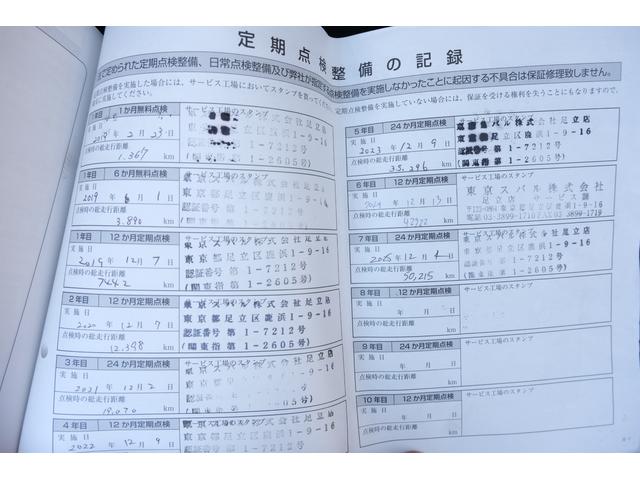 定期点検整備の記録
で定められた定期点検整備、日常点検整備及び弊社が指定する点検整備を実施しなかったことに起因する不具合は保証修理致しません。
整備を実施した場合には、サービス工場においてスタンプを貰ってください。
定期点検整備を実施していない場合には、保証を受ける権利を失うことにもなりますので、
実施してください。
1か月無料点検
サービス工場のスタンプ
2019年 2月 23日
東京都足立区鹿浜1-9-16
認証番号 第1-7212号
点検時の総走行距離
(関東指 第1-2605号)
1,367 km
1年目 6か月無料点検
サービス工場のスタンプ
実施日
2019年 6月 1日
東京都足立区鹿浜1-9-16
認証番号 第1-7212号
点検時の総走行距離
(関東指 第1-2605号)
3,890 km
1年目 12か月定期点検
サービス工場のスタンプ
実施日
東京スバル株式会社足立店
2019年 12月 7日
東京都足立区鹿浜1-9-16
点検時の総走行距離
認証番号 第1-7212号
7442 km
(関東指 第1-2605号)
2年目 12か月定期点検
サービス工場のスタンプ
実施日
東京スバル株式会社足立店
2020年 12月 7日
東京都足立区鹿浜1-9-16
点検時の総走行距離
認証番号 第1-7212号
12,348 km
(関東指 第1-2605号)
3年目 24か月定期点検
サービス工場のスタンプ
実施日
東京スバル株式会社足立店
2021年 12月 2日
東京都足立区鹿浜1-9-16
点検時の総走行距離
認証番号 第1-7212号
19,070 km
(関東指 第1-2605号)
4年目 12か月定期点検
サービス工場のスタンプ
実施日
東京スバル株式会社足立店
2022年 12月 9日
東京都足立区鹿浜1-9-16
点検時の総走行距離
認証番号 第1-7212号
5年目 24か月定期点検
サービス工場のスタンプ
実施日
東京スバル株式会社足立店
2023年 12月 9日
東京都足立区鹿浜1-9-16
点検時の総走行距離
認証番号 第1-7212号
35,296 km
(関東指 第1-2605号)
6年目 12か月定期点検
サービス工場のスタンプ
実施日
東京スバル株式会社
2024年 12月 13日
足立店 サービス課
点検時の総走行距離
東京都足立区鹿浜1-9-16
km
電話03-3899-1710 FAX03-3899-1719
7年目 24か月定期点検
サービス工場のスタンプ
実施日
東京スバル株式会社足立店
2025年 12月 4日
東京都足立区鹿浜1-9-16
点検時の総走行距離
認証番号 第1-7212号
50,215 km
(関東指 第1-2605号)
8年目 12か月定期点検
サービス工場のスタンプ
実施日
年 月 日
点検時の総走行距離
km
9年目 24か月定期点検
サービス工場のスタンプ
実施日
年 月 日
点検時の総走行距離
km
10年目 12か月定期点検
サービス工場のスタンプ
実施日
年 月 日
点検時の総走行距離
km